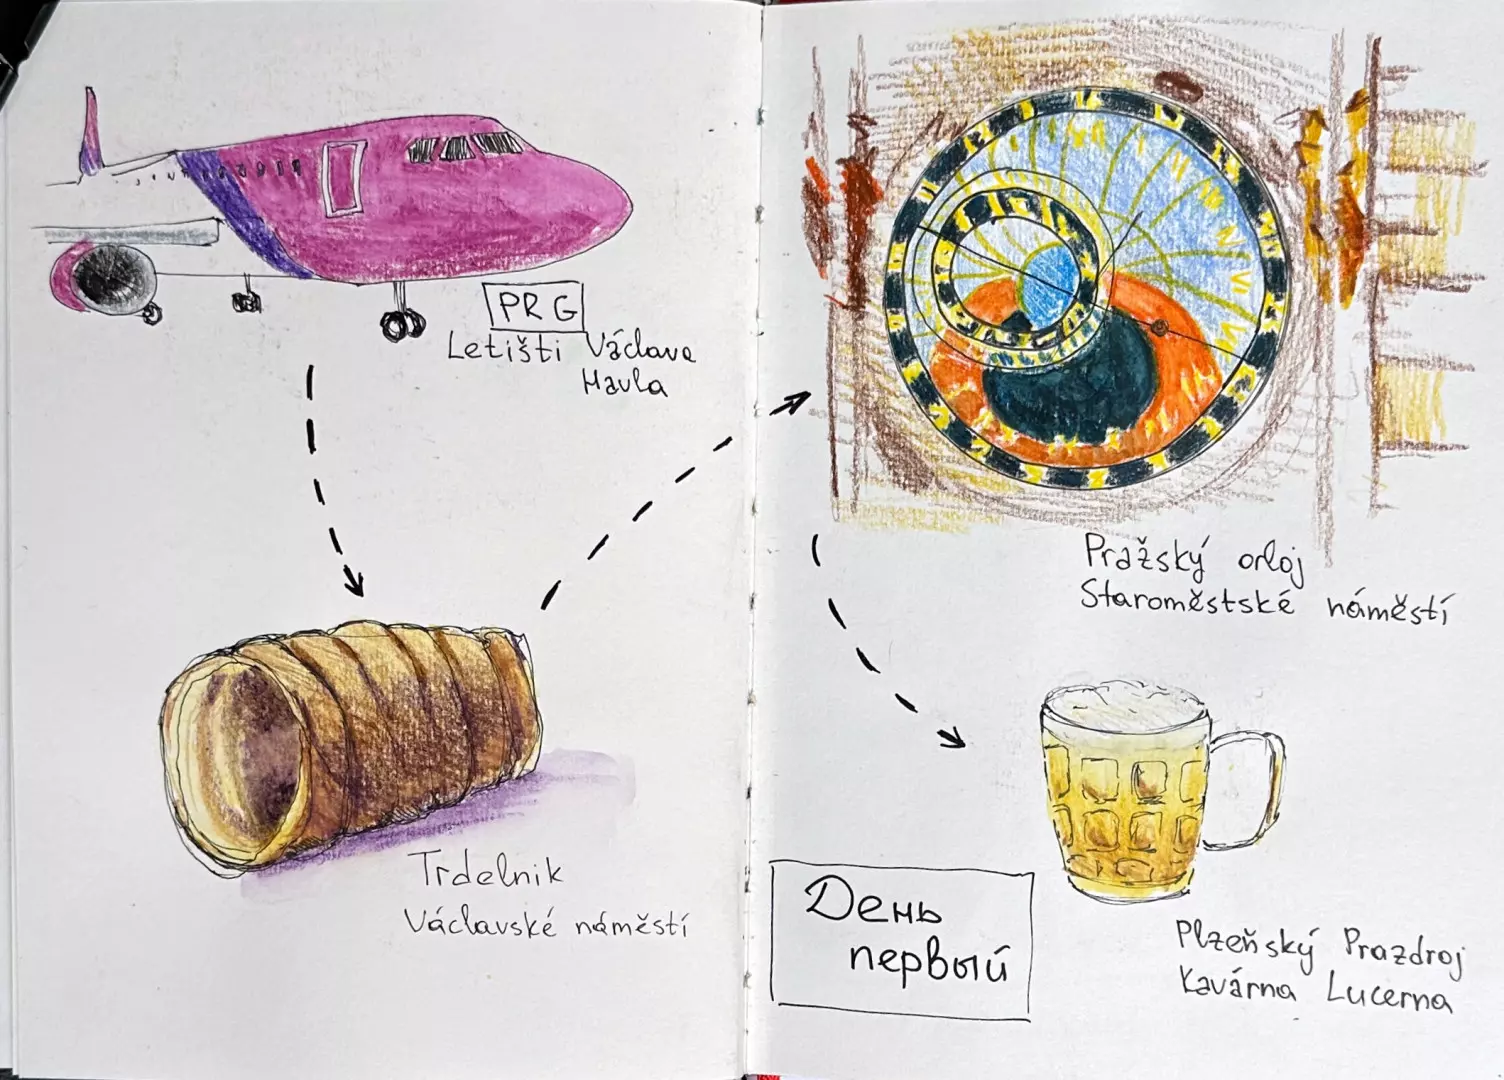 PRG
Letišti Václava
Havla
Trdelnik
Václavské náměstí
Pražský orloj
Staroměstské náměstí
Plzeňský Prazdroj
Kavárna Lucerna
День
первый